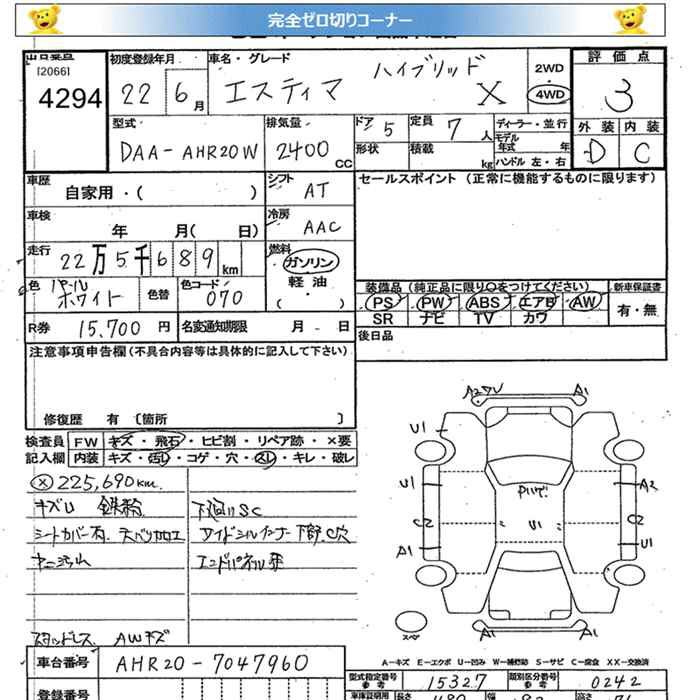 完全ゼロ切りコーナー
[2066]
4294
初度登録年月
22 6月
車名・グレード
エスティマ ハイブリッド X
2WD
4WD
評価点
3
外装 内装
D C
型式
DAA-AHR20W
排気量
2400 CC
ドア 5
形状
定員 7人
積載 kg
ディーラー・並行
モデル年式 年
ハンドル 左・右
車歴
自家用・( )
シフト AT
セールスポイント (正常に機能するものに限ります)
車検
年 月( 日)
冷房 AAC
走行
22万5千689km
燃料
ガソリン
軽油
( )
色 パール ホワイト
色替
色コード 070
装備品 (純正品に限り○をつけてください)
新車保証書
PS PW ABS エアB AW
SR ナビ TV カワ
有・無
R券 15,700円
名変通知期限 月 日
後日品
注意事項申告欄(不具合内容等は具体的に記入して下さい)
修復歴 有 [箇所 ]
検査員記入欄
FW キズ・飛石・ヒビ割・リペア跡・×要
内装 キズ・汚レ・コゲ・穴・スレ・キレ・破レ
× 225,690km
キズU 鉄粉
シートカバー有.
下廻りSC
サイドシルインナー下部.C穴
スタッドレス AWキズ
A2 U A1
U1
U1
C2
A1
U1
A2
C2
U1
A1 A1
スペア
A-キズ E-エクボ U-凹み W-補修跡 S-サビ C-腐食 XX-交換済
車台番号 AHR20-7047960
型式指定番号 参考 15327
類別区分番号 参考 0242
登録番号
車庫証明用
長さ
幅
高さ